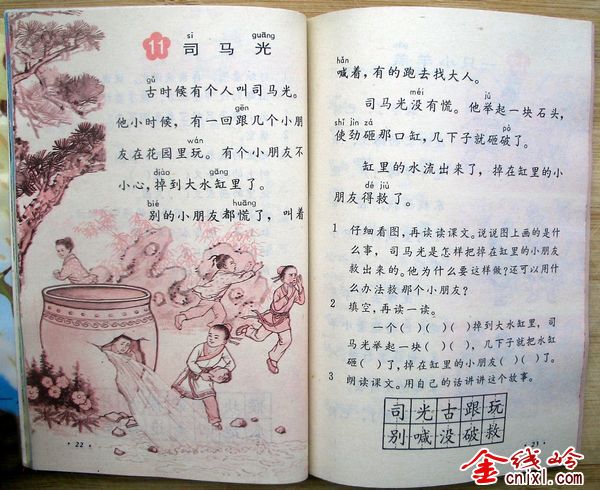 sī guāng
11 司马光
gǔ
古时候有个人叫司马光。
gēn
他小时候，有一回跟几个小朋
wán
友在花园里玩。有个小朋友不
diào gāng
小心，掉到大水缸里了。
bié huāng
别的小朋友都慌了，叫着
· 22 ·
hǎn
喊着，有的跑去找大人。
méi jǔ
司马光没有慌。他举起一块石头，
shǐ jìn zá pò
使劲砸那口缸，几下子就砸破了。
缸里的水流出来了，掉在缸里的小
dé jiù
朋友得救了。
1 仔细看图，再读读课文。说说图上画的是什
么事，司马光是怎样把掉在缸里的小朋友
救出来的。他为什么要这样做？还可以用什
么办法救那个小朋友？
2 填空，再读一读。
一个（ ）（ ）（ ）掉到大水缸里，司
马光举起一块（ ）（ ），几下子就把水缸
砸（ ）了，掉在缸里的小朋友（ ）（ ）了。
3 朗读课文。用自己的话讲讲这个故事。
司光古跟玩
别喊没破救
金线岭
cnjxl.com